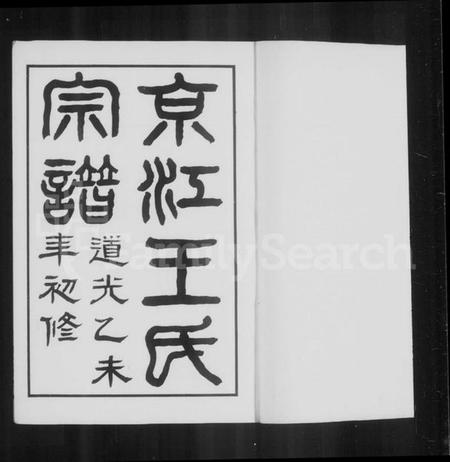 京江王氏
宗譜
道光乙未
年初修
FamilySearch